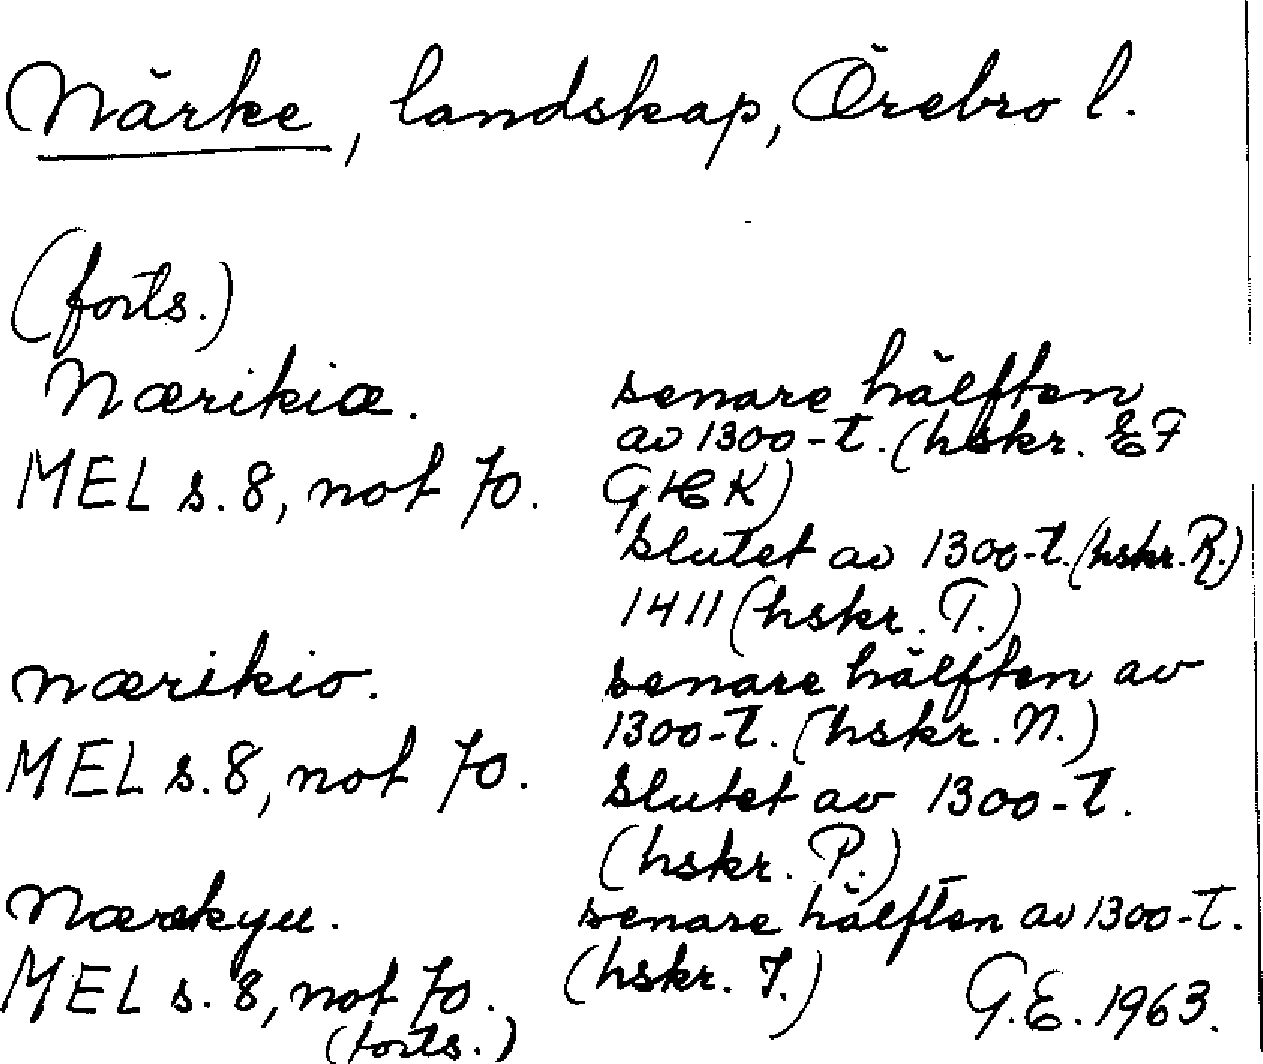 Närke, landskap, Örebro l.
(forts.)
Nærikiæ. senare hälften
av 1300-t. (hskr. EF
MEL s. 8, not 70. GHK)
slutet av 1300-t. (hskr. R.)
1411 (hskr. T.)
nærikio. senare hälften av
1300-t. (hskr. N.)
MEL s. 8, not 70. slutet av 1300-t.
(hskr. P.)
senare hälften av 1300-t.
MEL s. 8, not 70. (hskr. J.) G.E. 1963.
(forts.)